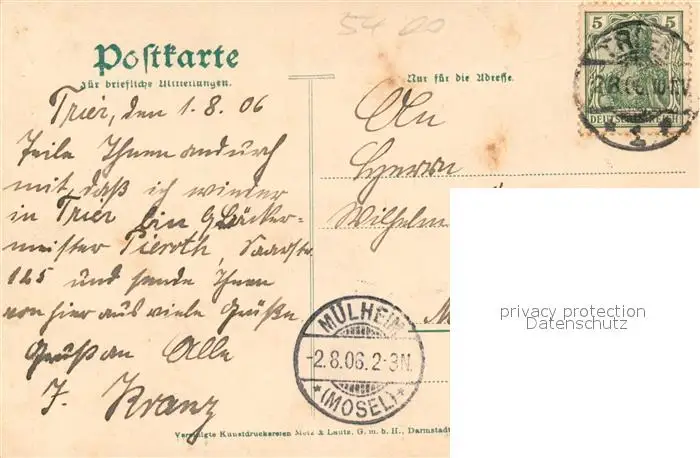 54 00
Postkarte
Für briefliche Mitteilungen.
Nur für die Adresse.
Trier, den 1.8.06
Teile Ihnen andurch
mit, daß ich wieder
in Trier bin Bäcker-
meister Pieroth, Saarstr.
125 und sende Ihnen
von hier aus viele Grüße
Gruß an Alle
J. Kranz
An
Herrn
Wilhelm
M
5 5
DEUTSCHES REICH
TRIER
1
MÜLHEIM
-2.8.06.2-3N.
(MOSEL)
privacy protection
Datenschutz
Vereinigte Kunstdruckereien Metz & Lautz, G. m. b. H., Darmstadt